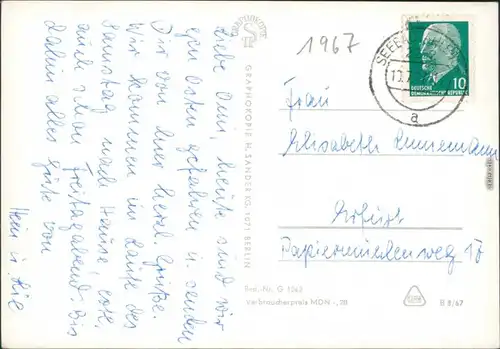 Liebe Omi, heute sind wir
gen Osten gefahren u. senden
Dir von hier herzl. Grüße.
Wir kommen im Laufe des
Samstag nach Hause evtl.
auch schon Freitagabend. Bis
dahin alles Gute von
Hein u.
GRAPHOKOPIE
GRAPHOKOPIE H. SANDER KG, 1071 BERLIN
1967
10
DEUTSCHE
DEMOKRATISCHE REPUBLIK
a
Frau
Elisabeth
Erfurt
Papiermühlenweg
Best.-Nr. G 1363
Verbraucherpreis MDN -,20
B 8/67